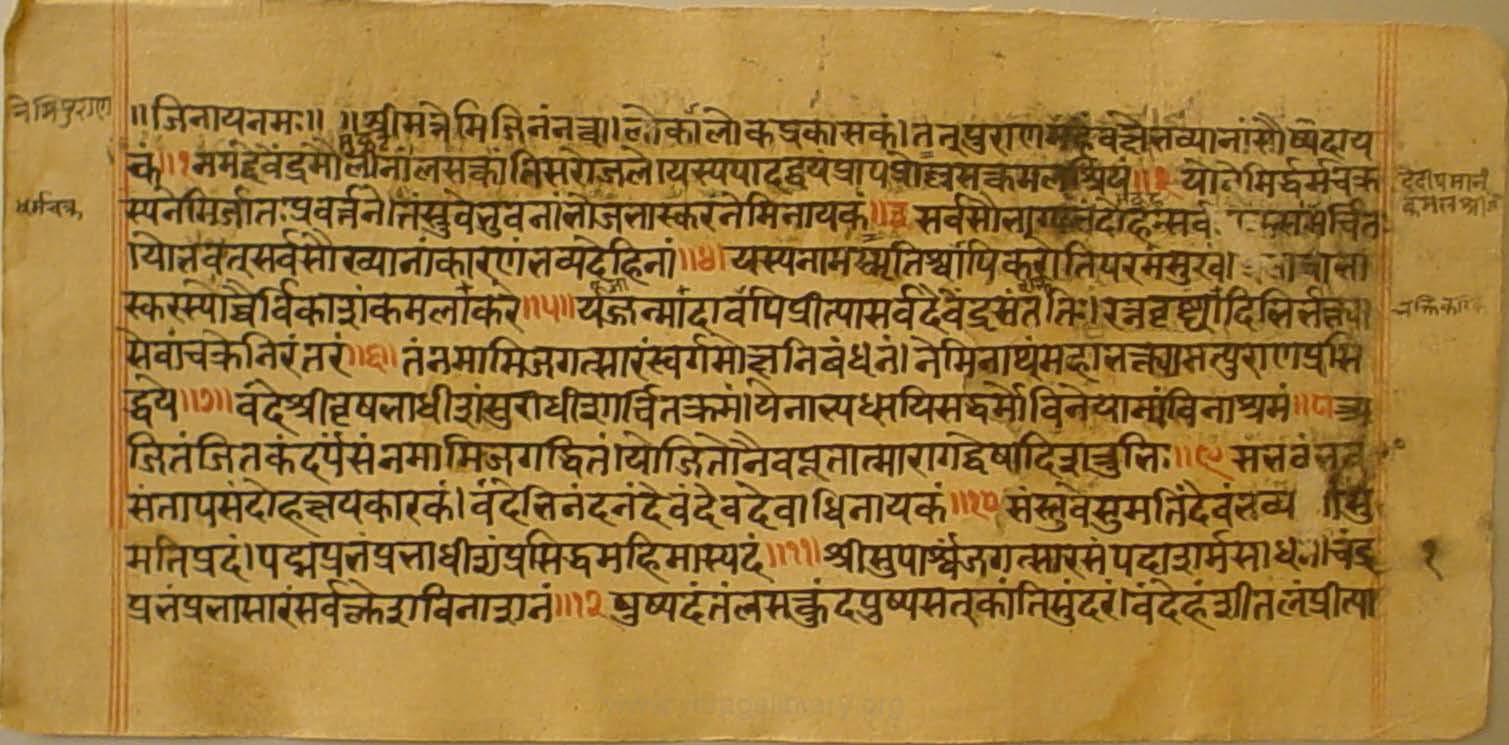 नेमिपुराण
॥जिनायनमः॥ ॥श्रीमन्नेमिजिनंनत्वा।लोकालोकप्रकासकं।तत्पुराणमहंवक्ष्येभव्यानांसौष्यदाय
कं॥१नमद्देवेंद्रमौलीनांलसत्कांतिसरोजले।यस्यपादद्वयप्रापप्रोच्चसत्कमलश्रियं॥२योनेमिर्द्धर्मचक्र
धर्मचक्र
स्यनेमिर्जातःप्रवर्त्तने।तंस्तुवेभुवनांभोजभास्करंनेमिनायकं॥३सर्वसौभाग्यसंदोहःसर्व
योभवत्सर्वसौख्यानांकारणंभव्यदेहिनां॥४।यस्यनामस्मृतिश्चापिकरोतिपरमंसुखं।
स्करस्योच्चैर्विकाशंकमलाकरे॥५॥यज्जन्मादावपिप्रीत्यासर्वदेवेंद्रसंततिः।रत्नवृष्ट्यादिभिर्भक्त्या।
सेवांचक्रेनिरंतरं॥६।तंनमामिजगत्सारंस्वर्गमोक्षनिबंधनं।नेमिनाथंमहाभक्त्यासत्पुराणप्रसि
द्धये॥७॥वंदेश्रीवृषभाधीशंसुराधीशार्चितक्रमं।येनाभ्यधायिसद्धर्मोविनेयानांविनाश्रमं॥८अ
जितंजितकंदर्पंसंनमामिजगद्धितं।योजितोनैवपूतात्मारागद्वेषादिशत्रुभिः॥९संभवंभव
संतापसंदोहक्षयकारकं।वंदेभिनंदनंदेवंदेवदेवाधिनायकं॥१०संस्तुवेसुमतिंदेवंभव्य सु
मतिप्रदं।पद्मप्रभंप्रभाधीशंप्रसिद्धमहिमास्पदं॥११॥श्रीसुपार्श्वंजगत्सारसंपदाशर्मसाधनं।चंद्र
१
प्रभंप्रभासारंसर्वक्लेशविनाशनं॥१२पुष्पदंतंलसत्कुंदपुष्पसत्कांतिसुंदरं।वंदेहंशीतलंप्रीत्या